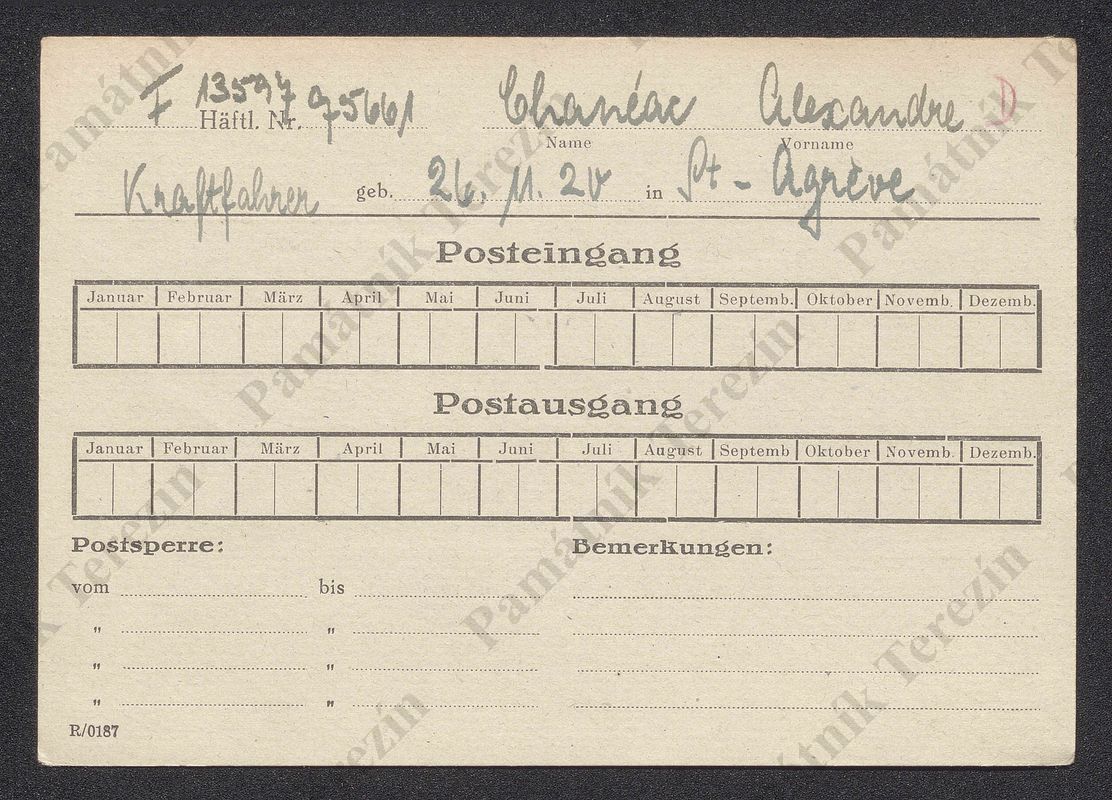 F 13597 75661 Chanéac Alexandre D
Häftl. Nr. Name Vorname
Kraftfahrer geb. 26. 11. 20 in St - Agrève
Posteingang
Januar Februar März April Mai Juni Juli August Septemb. Oktober Novemb. Dezemb.
Postausgang
Januar Februar März April Mai Juni Juli August Septemb Oktober Novemb. Dezemb.
Postsperre: Bemerkungen:
vom bis
" "
" "
" "
R/0187
Památník Terezín